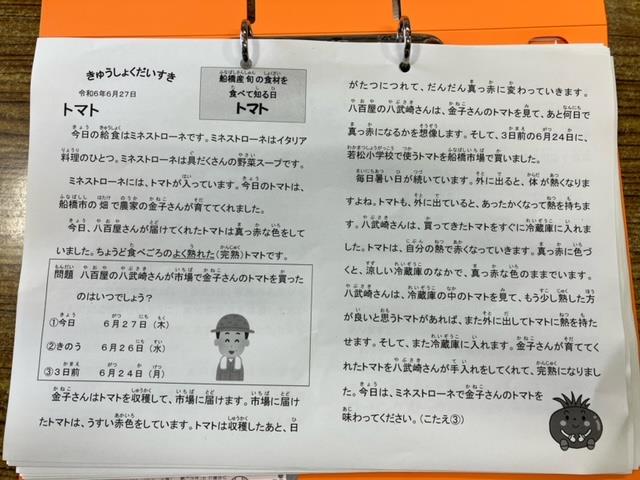 きゅうしょくだいすき
令和6年6月27日
船橋産旬の食材を
食べて知る日
トマト
トマト
今日の給食はミネストローネです。ミネストローネはイタリア
料理のひとつ。ミネストローネは具だくさんの野菜スープです。
ミネストローネには、トマトが入っています。今日のトマトは、
船橋市の畑で農家の金子さんが育ててくれました。
今日、八百屋さんが届けてくれたトマトは真っ赤な色をして
いました。ちょうど食べごろのよく熟れた(完熟)トマトです。
問題 八百屋の八武崎さんが市場で金子さんのトマトを買った
のはいつでしょう?
①今日 6月27日(木)
②きのう 6月26日(水)
③3日前 6月24日(月)
金子さんはトマトを収穫して、市場に届けます。市場に届け
たトマトは、うすい赤色をしています。トマトは収穫したあと、日
がたつにつれて、だんだん真っ赤に変わっていきます。
八百屋の八武崎さんは、金子さんのトマトを見て、あと何日で
真っ赤になるかを想像します。そして、3日前の6月24日に、
若松小学校で使うトマトを船橋市場で買いました。
毎日暑い日が続いています。外に出ると、体が熱くなりま
すよね。トマトも、外に出ていると、あったかくなって熱を持ちま
す。八武崎さんは、買ってきたトマトをすぐに冷蔵庫に入れま
した。トマトは、自分の熱で赤くなっていきます。真っ赤に色づ
くと、涼しい冷蔵庫のなかで、真っ赤な色のままでいます。
八武崎さんは、冷蔵庫の中のトマトを見て、もう少し熟した方
が良いと思うトマトがあれば、また外に出してトマトに熱を持た
せます。そして、また冷蔵庫に入れます。金子さんが育ててく
れたトマトを八武崎さんが手入れをしてくれて、完熟になりまし
た。今日は、ミネストローネで金子さんのトマトを
味わってください。(こたえ③)